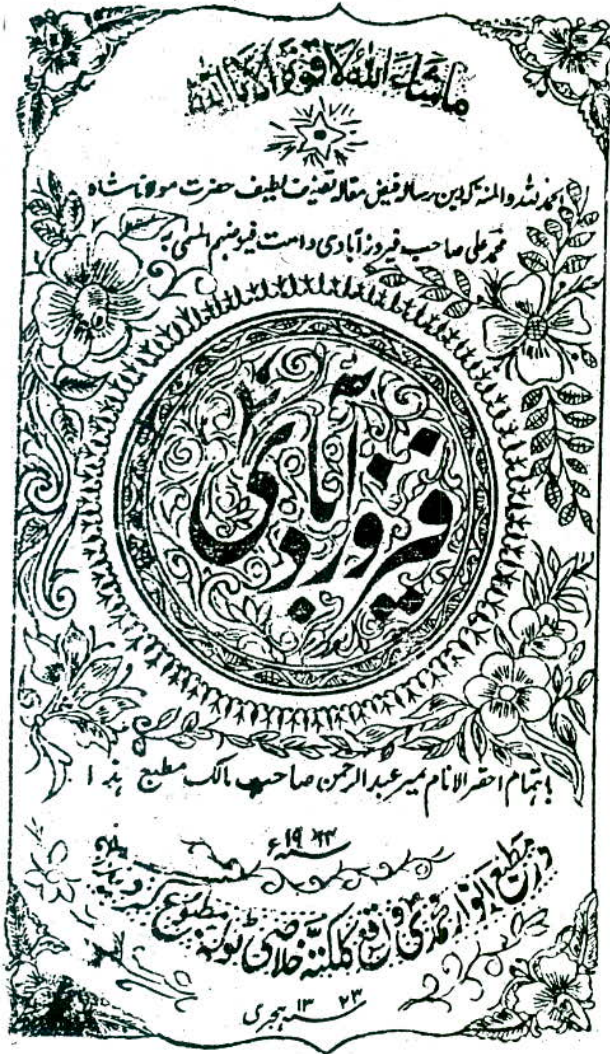 ماشاء الله لا قوة الا بالله
الحمد لله والمنه که این رساله فیض مقاله تصنیف لطیف حضرت مولانا شاه
محمد علی صاحب فیروزآبادی دامت فیوضهم المسمی به
فیروزآبادی
باهتمام احقر الانام میر عبد الرحمن صاحب مالک مطبع هذا
سنه ۱۹ ء
در مطبع انوار محمدی واقع کلکته خلاصی ٹوله مطبوع گردید
سنه ۱۳۲۳ هجری